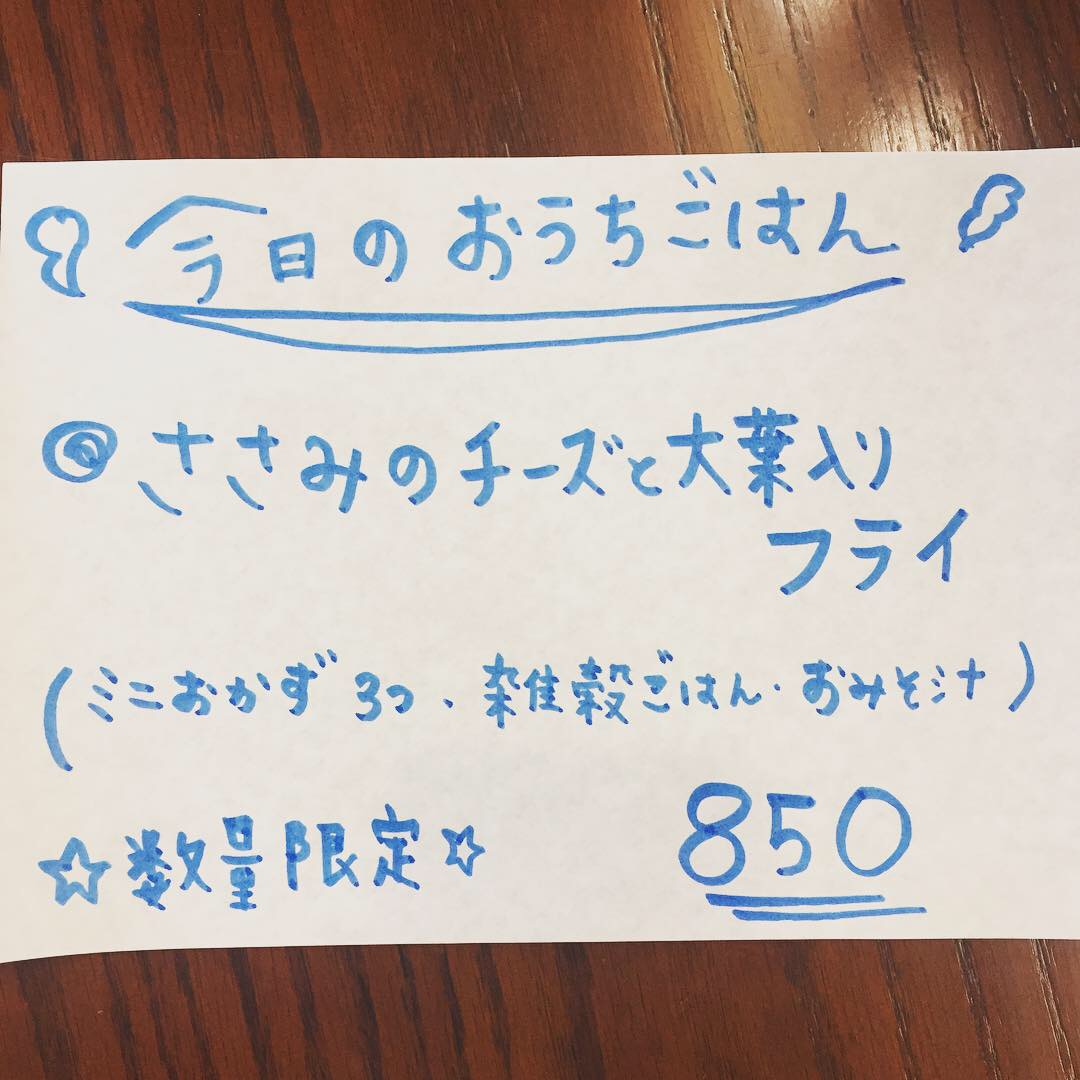 今日のおうちごはん
◎ささみのチーズと大葉入り
フライ
(ミニおかず3つ、雑穀ごはん・おみそ汁)
☆数量限定☆ 850